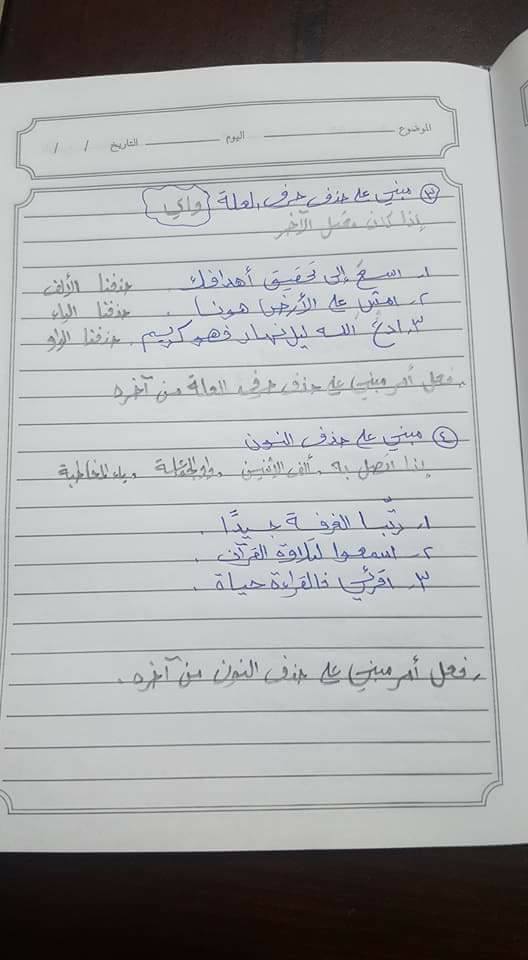 الموضوع اليوم التاريخ / /
٣ مبني على حذف حرف العلة (واي)
إذا كان معتل الآخر
١. اسعَ إلى تحقيق أهدافك. حذفنا الألف
٢. امشِ على الأرض هونا. حذفنا الياء
٣. ادعُ الله ليل نهار فهو كريم. حذفنا الواو
. فعل أمر مبني على حذف حرف العلة من آخره
٤ مبني على حذف النون
إذا اتصل به، ألف الاثنين، واو الجماعة، ياء المخاطبة
١. رتّبا الغرفة جيدًا.
٢. اسمعوا لتلاوة القرآن.
٣. اقرئي فالقراءة حياة.
. فعل أمر مبني على حذف النون من آخره.